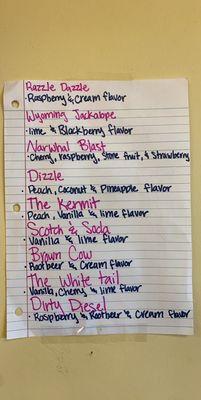 Razzle Dazzle
· Raspberry & Cream flavor
Wyoming Jackalope
· lime & Blackberry flavor
Narwhal Blast
· Cherry, raspberry, Stone fruit, & Strawberry
Dizzle
· Peach, Coconut & Pineapple flavor
The Kermit
· Peach, Vanilla & lime flavor
Scotch & Soda
· Vanilla & lime flavor
Brown Cow
· Rootbeer & Cream flavor
The White tail
· Vanilla, Cherry & lime flavor
Dirty Diesel
· Raspberry & Rootbeer & Cream flavor